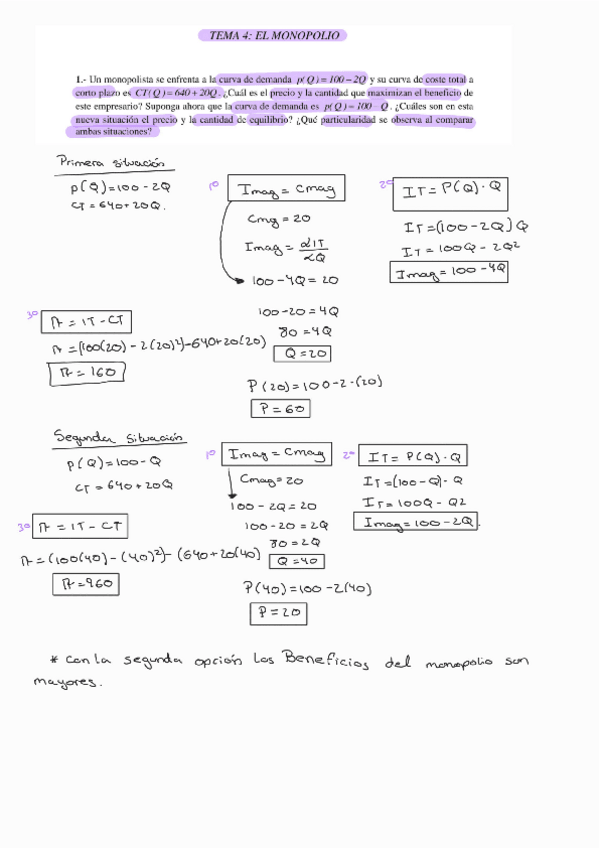 TEMA 4: EL MONOPOLIO
1.- Un monopolista se enfrenta a la curva de demanda p(Q) = 100 – 2Q y su curva de coste total a
corto plazo es CT(Q) = 640 + 20Q. ¿Cuál es el precio y la cantidad que maximizan el beneficio de
este empresario? Suponga ahora que la curva de demanda es p(Q) = 100 – Q. ¿Cuáles son en esta
nueva situación el precio y la cantidad de equilibrio? ¿Qué particularidad se observa al comparar
ambas situaciones?
Primera situación
P(Q) = 100 - 2Q
CT = 640 + 20Q.
1º Imag = Cmag
Cmg = 20
Imag = αIT/αQ
100 - 4Q = 20
100 - 20 = 4Q
80 = 4Q
Q = 20
P(20) = 100 - 2·(20)
P = 60
2º IT = P(Q)·Q
IT = (100 - 2Q)Q
IT = 100Q - 2Q2
Imag = 100 - 4Q
3º π = IT - CT
π = (100(20) - 2(20)²) - 640 + 20(20)
π = 160
Segunda situación
P(Q) = 100 - Q
CT = 640 + 20Q
1º Imag = Cmag
Cmag = 20
100 - 2Q = 20
100 - 20 = 2Q
80 = 2Q
Q = 40
P(40) = 100 - 2(40)
P = 20
2º IT = P(Q)·Q
IT = (100 - Q)·Q
IT = 100Q - Q2
Imag = 100 - 2Q.
3º π = IT - CT
π = (100(40) - (40)²) - (640 + 20(40)
π = 960
* Con la segunda opción los Beneficios del monopolio son
mayores.